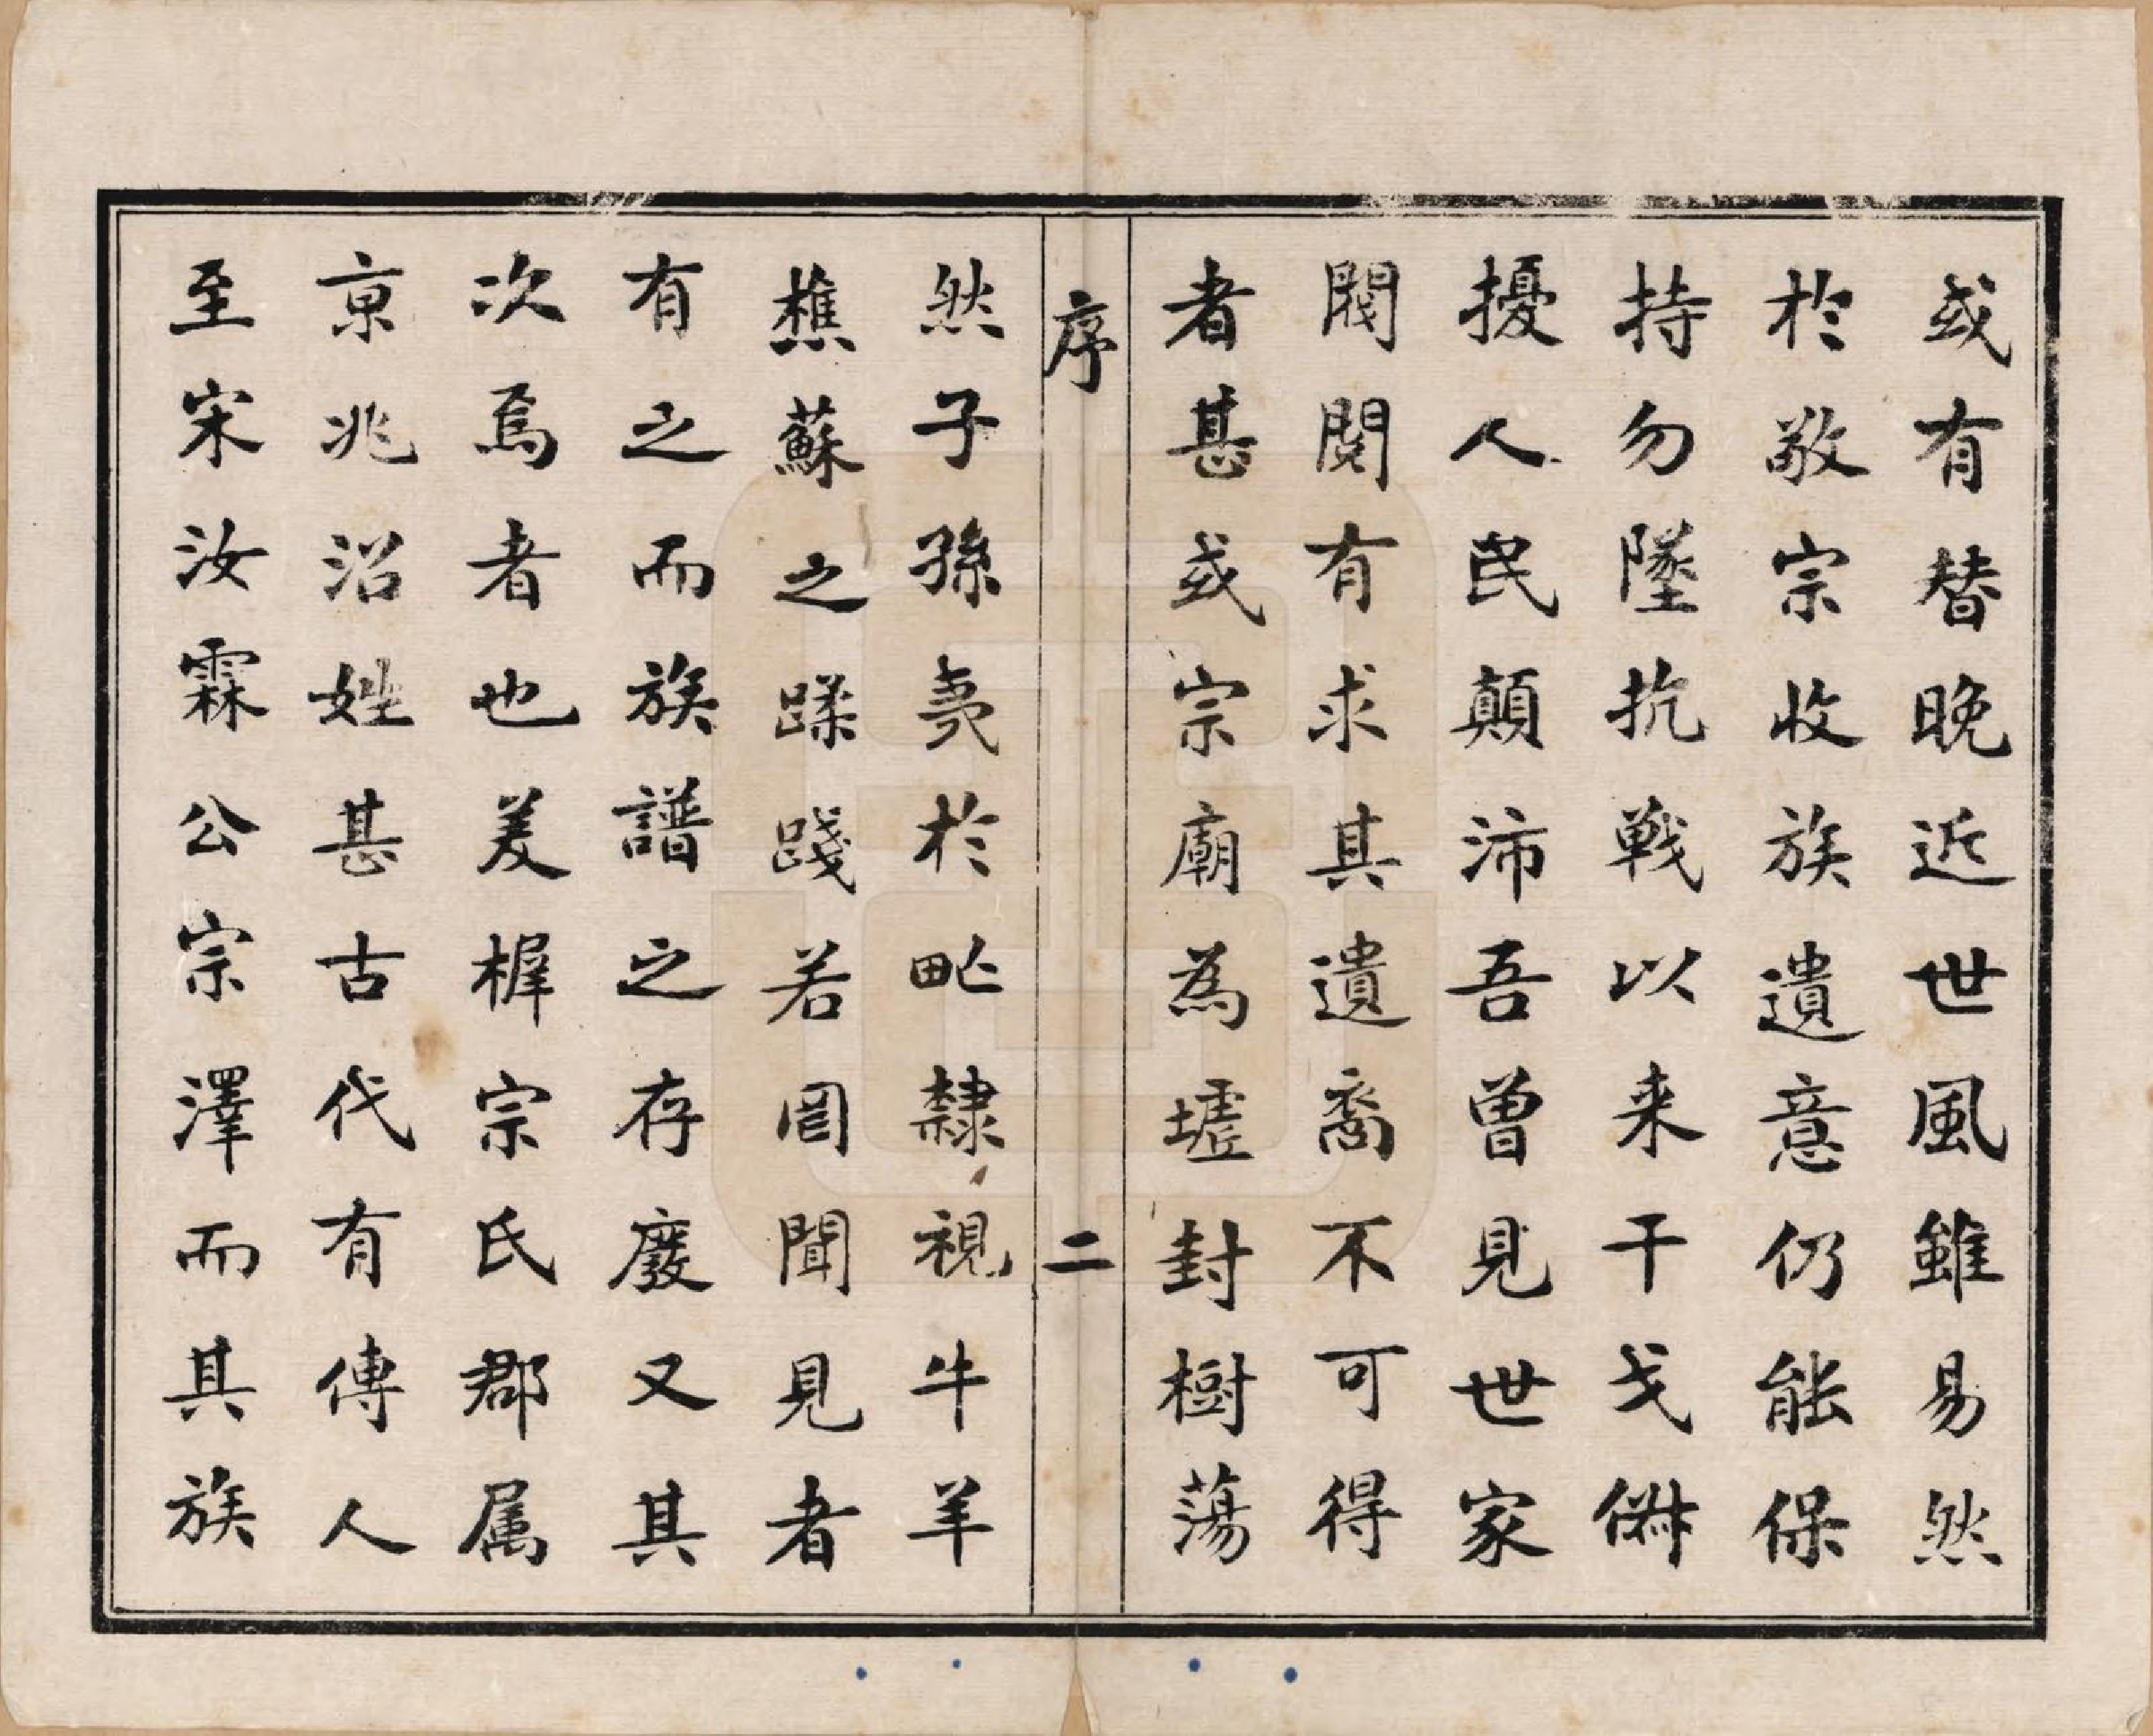 或有替晚近世風雖易然
於敬宗收族遺意仍能保
持勿墜抗戰以来干戈俶
擾人民顛沛吾曾見世家
閥閱有求其遺裔不可得
者甚或宗廟為墟封樹蕩
序
二
然子孫夷於甿隸視牛羊
樵蘇之蹂踐若罔聞見者
有之而族譜之存廢又其
次焉者也義樨宗氏郡属
京兆沿姓甚古代有傳人
至宋汝霖公宗澤而其族